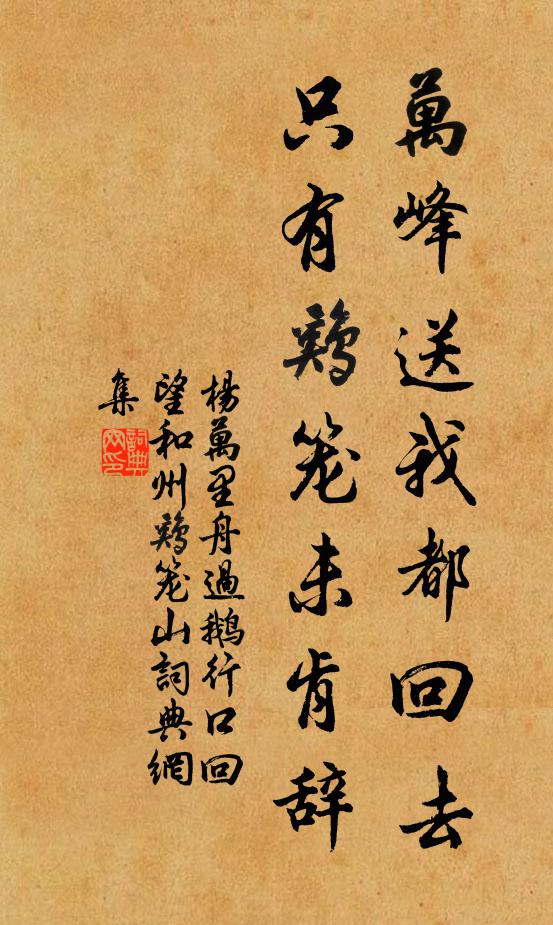 萬峰送我都回去
只有鷄笼未肯辞
楊萬里舟過鵝行口回
望和州鷄笼山詞典網
集
詞典
网印